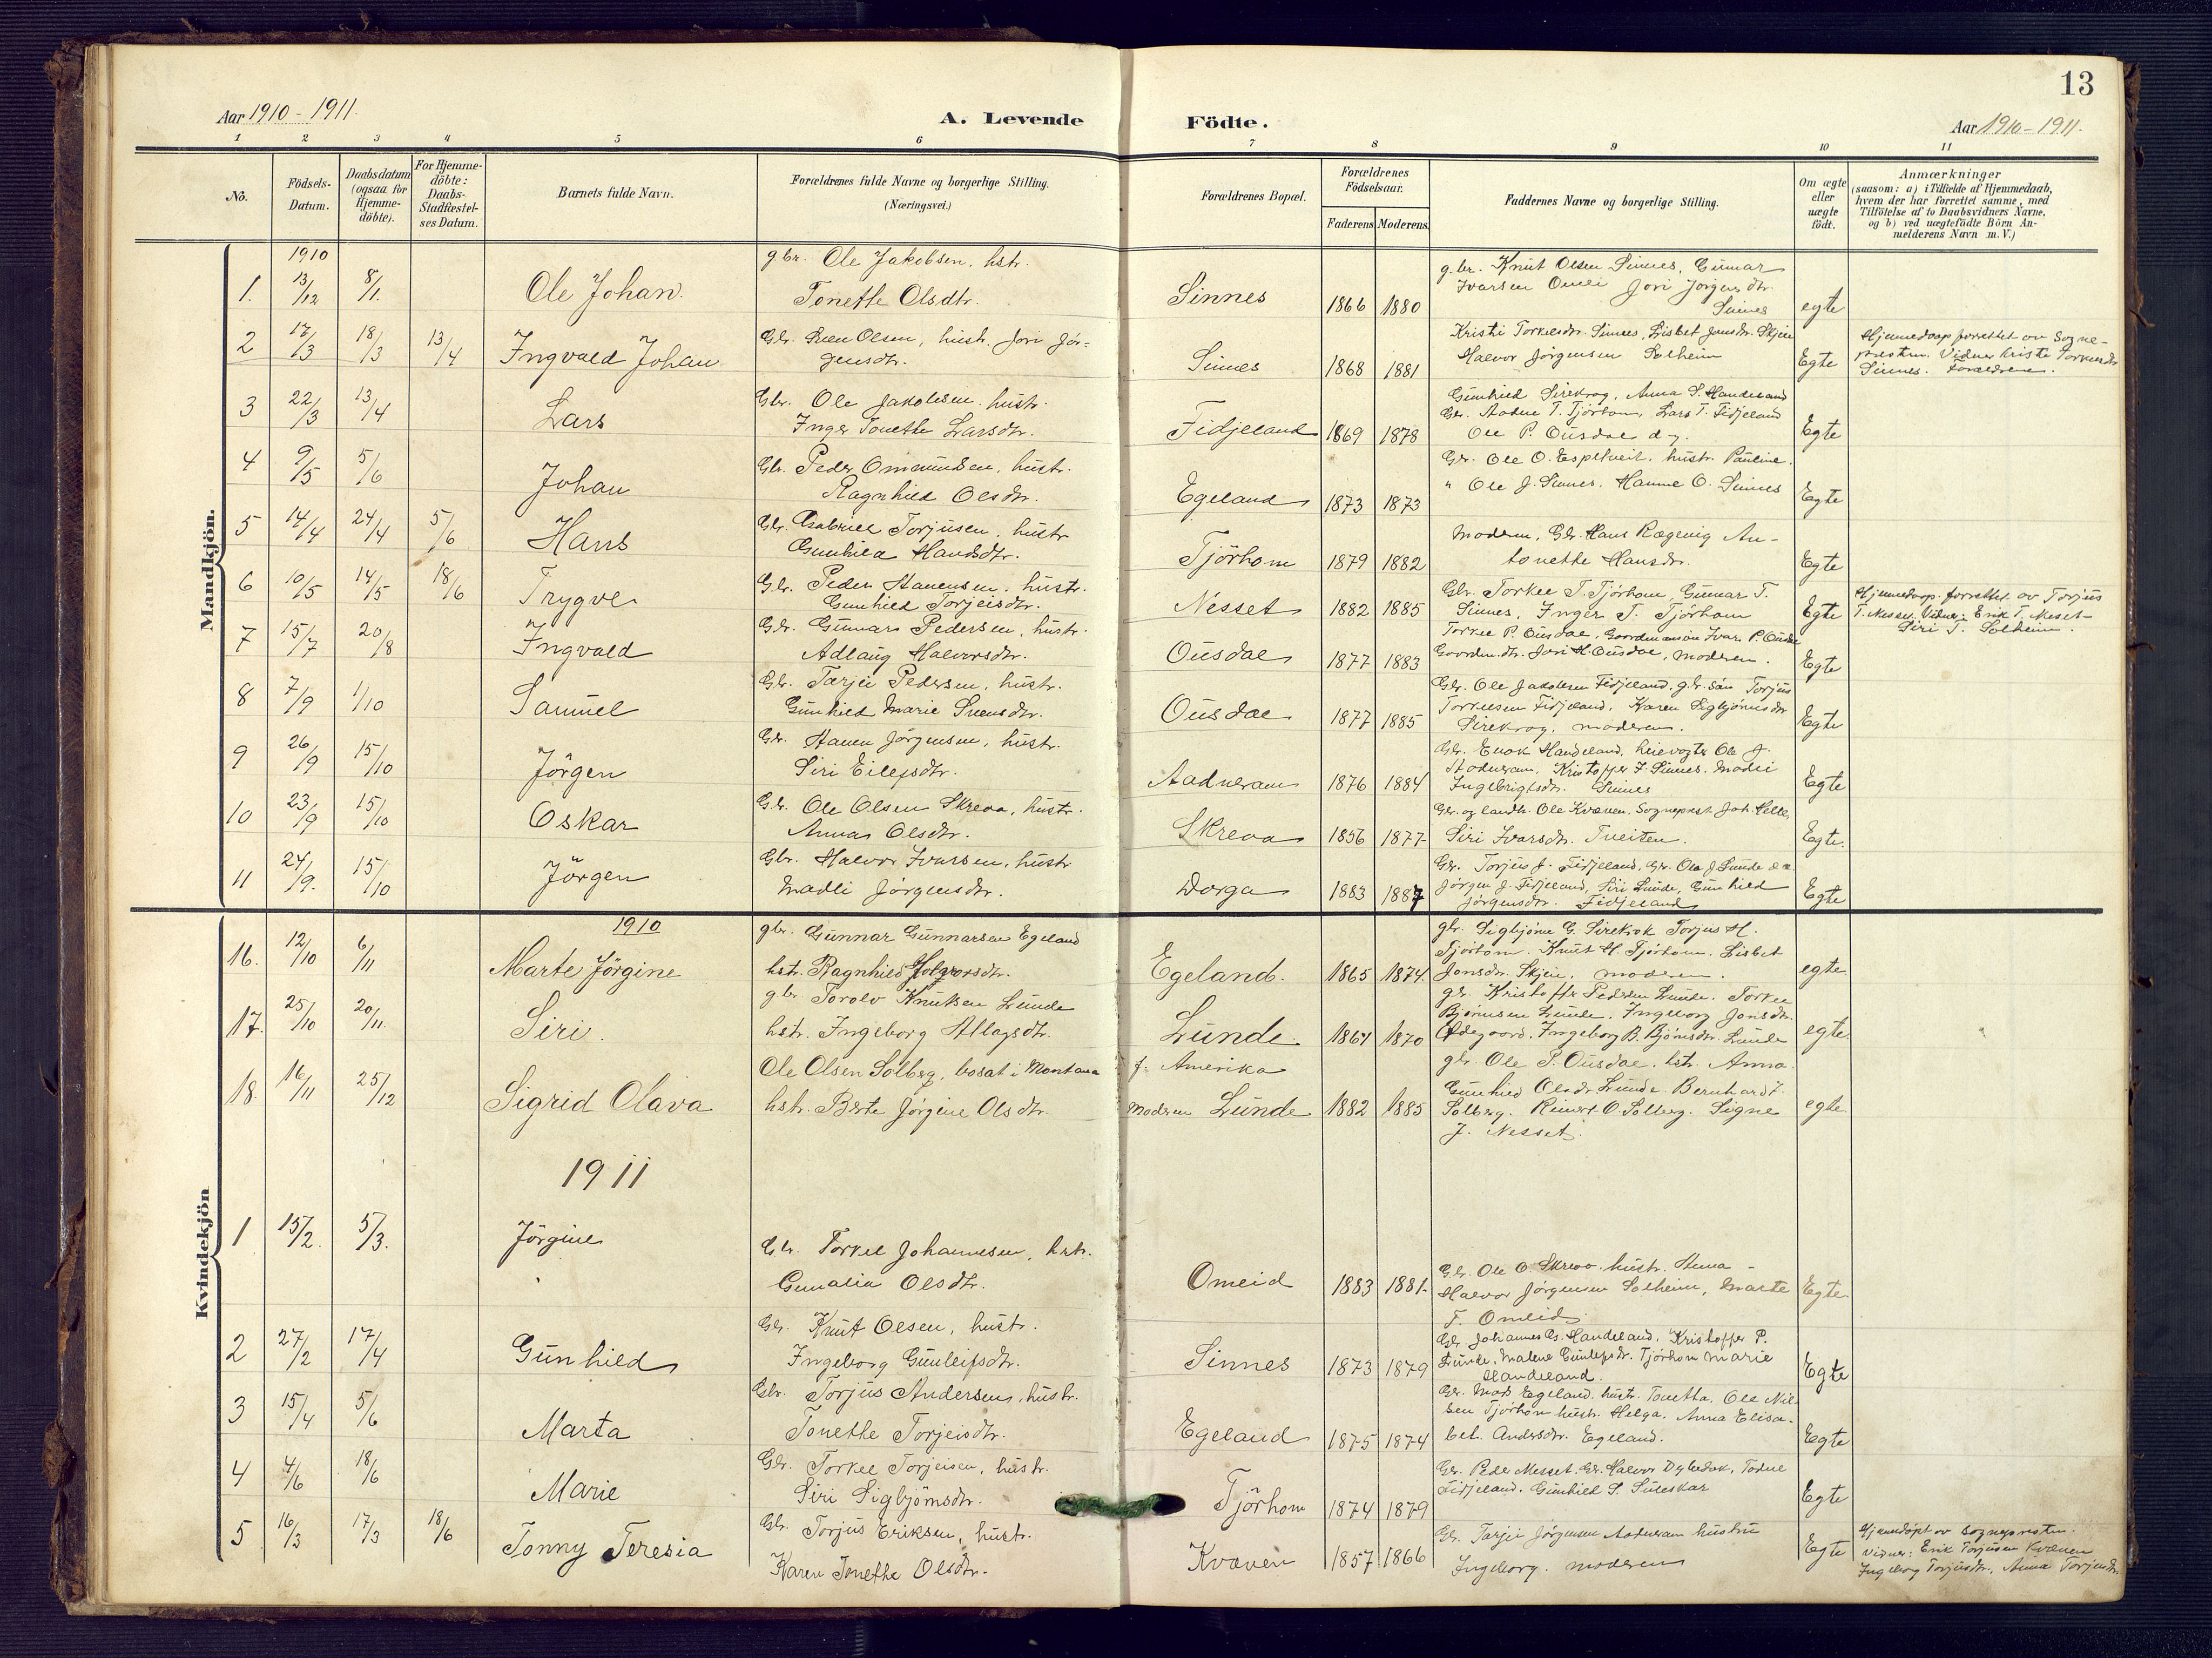 13
Aar 1910 - 1911.
A. Levende Födte.
Aar 1910 - 1911.
1 2 3 4 5 6 7 8 9 10 11
No.
Födsels-
Datum.
Daabsdatum
(ogsaa for
Hjemme-
döbte).
For Hjemme-
döbte:
Daabs-
Stadfæstel-
ses Datum.
Barnets fulde Navn.
Forældrenes fulde Navne og borgerlige Stilling.
(Næringsvei.)
Forældrenes Bopæl.
Forældrenes
Födselsaar.
Faderens Moderens
Faddernes Navne og borgerlige Stilling.
Om ægte
eller
uægte
födt.
Anmærkninger
(saasom: a) i Tilfælde af Hjemmedaab,
hvem der har forrettet samme, med
Tilföielse af to Daabsvidners Navne,
og b) ved uægtefödte Börn An-
melderens Navn m. V.)
Mandkjön.
1910
1. 13/12 8/1. Ole Johan.
gbr. Ole Jakobsen, hstr.
Tonette Olsdtr.
Sinnes 1866 1880
g.br. Knut Olsen Sinnes, Gunnar
Ivarsen Omli Jori Jörgensdtr.
Sinnes
egte
2 17/3 18/3 13/4 Ingvald Johan
Gbr. Sven Olsen, hustr. Jori Jör-
gensdtr.
Sinnes 1868 1881
Kristi Torkelsdtr. Sinnes, Lisbet Jonsdtr. Skjein
Halvor Jörgensen Solheim
Egte
Hjemmedaap forrettet av Sogne-
presten. Vidner Kristi Torkelsdtr
Sinnes. Forældrene.
3 22/3 13/4 Lars
Gbr. Ole Jakobsen hustr.
Inger Tonette Larsdtr.
Fidjeland 1869 1878
Gunhild Sirekrog, Anna S. Handeland
Gbr. Aadne T. Tjörhom, Lars T. Fidjeland
Ole P. Ousdal d.y.
Egte
4 9/5 5/6 Johan
Gbr. Peder Omundsen, hustr.
Ragnhild Olsdtr.
Egeland 1873 1873
Gbr. Ole O. Espetveit, hustr. Pauline.
" Ole J. Sinnes. Hanne O. Sinnes
Egte
5 14/4 24/4 5/6 Hans
Gbr. Gabriel Torjusen, hustr
Gunhild Hansdtr.
Tjörhom 1879 1882
Modern, Gbr. Hans Rægevig An-
tonette Hansdtr.
Egte
6 10/5 14/5 18/6 Trygve
Gbr. Peder Hanensen, hustr.
Gunhild Torjeisdtr.
Nesset 1882 1885
Gbr. Torkel T. Tjörhom, Gunnar T.
Sinnes, Inger T. Tjörhom
Egte
Hjemmedaap forrettet av Torjus
T. Nesset, Vidner: Erik T. Nesset
Siri T. Solheim.
7 15/7 20/8 Ingvald
Gbr. Gunnar Pedersen, hustr.
Adlaug Halvorsdtr.
Ousdal 1877 1883
Torkel P. Ousdal, Gaardmansön Ivar P. Ousdal
Gaardm.dtr. Jori H. Ousdal, moderen.
Egte
8 7/9 1/10 Samuel
Gbr. Tarjei Pedersen, hustr.
Gunhild Marie Svensdtr.
Ousdal 1877 1885
Gbr. Ole Jakobsen Fidjeland, g.br. sön Torjus
Torkelsen Fidjeland, Karen Sigbjörnsdtr
Sirekrog, moderen.
Egte
9 26/9 15/10 Jörgen
Gbr. Hanen Jörgensen, hustr.
Siri Eilefsdtr.
Aadneram 1876 1884
Gbr. Enok Handeland, heievogter Ole J.
Aadneram, Kristoffer J. Sinnes. Madli
Ingebrigtsdtr. Sinnes
Egte
10 23/9 15/10 Oskar
Gbr. Ole Olsen Skreva, hustr.
Anna Olsdtr.
Skreva 1856 1877
Gbr. og landh. Ole Kvæven. Sogneprest Joh. Helle,
Siri Ivarsdtr. Tveiten.
Egte.
11 24/9. 15/10 Jörgen
Gbr. Halvor Ivarsen, hustr
Madli Jörgensdtr.
Dorga 1883 1887
Gbr. Torjus J. Fidjeland, Gbr. Ola J. Lunde d.æ.
Jörgen J. Fidjeland, Siri Lunde, Gunhild
Jörgensdtr. Fidjeland
Egte
Kvindekjön
1910
16. 12/10 6/11 Marte Jörgine
gbr. Gunnar Gunnarsen Egeland
hstr. Ragnhild
Egeland. 1865 1874.
gbr. Sigbjörn G. Sirekrok Torjus H.
Tjörhom. Knut H. Tjörhom. Lisbet
Jonsdtr. Skjein, moderen.
egte
17. 25/10 20/11. Siri.
gbr Torolv Knutsen Lunde
hstr. Ingeborg Atlagsdtr.
Lunde. 1867 1870
gbr. Kristoffer Pedersen Lunde. Torkel
Björnsen Lunde. Ingeborg Jonsdtr.
Ödegaard. Ingeborg B. Björnsdtr. Lunde
egte
18. 16/11 25/12 Sigrid Olava
Ole Olsen Solberg, bosat i Montana
hstr. Berte Jörgine Olsdtr.
f. Amerika
Moderen Lunde 1882 1885
gbr Ole P. Ousdal. hstr. Anna
Gunhild Olsdtr Lunde. Bernhard J.
Solberg. Reinert O. Solberg. Signe
J. Nesset.
egte
1911
1 15/2. 5/3. Jörgine
Gbr. Torkel Johannesen, hstr.
Gunalia Olsdtr.
Omeid 1883 1881.
Gbr. Ole O. Skreva. hustr. Anna
Halvor Jörgensen Solheim, Marte
T. Omeid
Egte
2 27/2 17/4 Gunhild
Gbr. Knut Olsen, hustr.
Ingeborg Gunleifsdtr.
Sinnes 1873 1879
Gbr. Johannes G. Handeland. Kristoffer P.
Lunde. Malene Gunlefsdtr. Tjörhom Marie
Handeland.
Egte
3 15/4 5/6 Marta
Gbr. Torjus Andersen, hustr.
Tonette Torjeisdtr.
Egeland 1875 1874
Gbr. Mads Egeland. hustr. Tonetta. Ole Nil-
sen Tjörhom hustr. Helga. Anna Elisa-
bet. Andersdtr. Egeland.
Egte
4 4/6 18/6 Marie
Gbr. Torkel Torjeisen, hustr.
Siri Sigbjörnsdtr.
Tjörhom 1874 1879
Gbr. Peder Nesset. Gbr. Halvor Dybedok, Todne
Fidjeland. Gunhild S. Suleskar
Egte
5 16/3 17/3 18/6 Tonny Teresia
Gbr. Torjus Eriksen, hustr.
Karen Tonette Olsdtr.
Kvæven 1857 1866
Gbr. Tarjei Jörgensen Aadneram hustru
Ingeborg. moderen
Egte
Hjemdöpt av Sognepresten.
Vidner: Erik Torjusen Kvæven
Ingeborg Torjusdtr. Anna Torjusdtr.